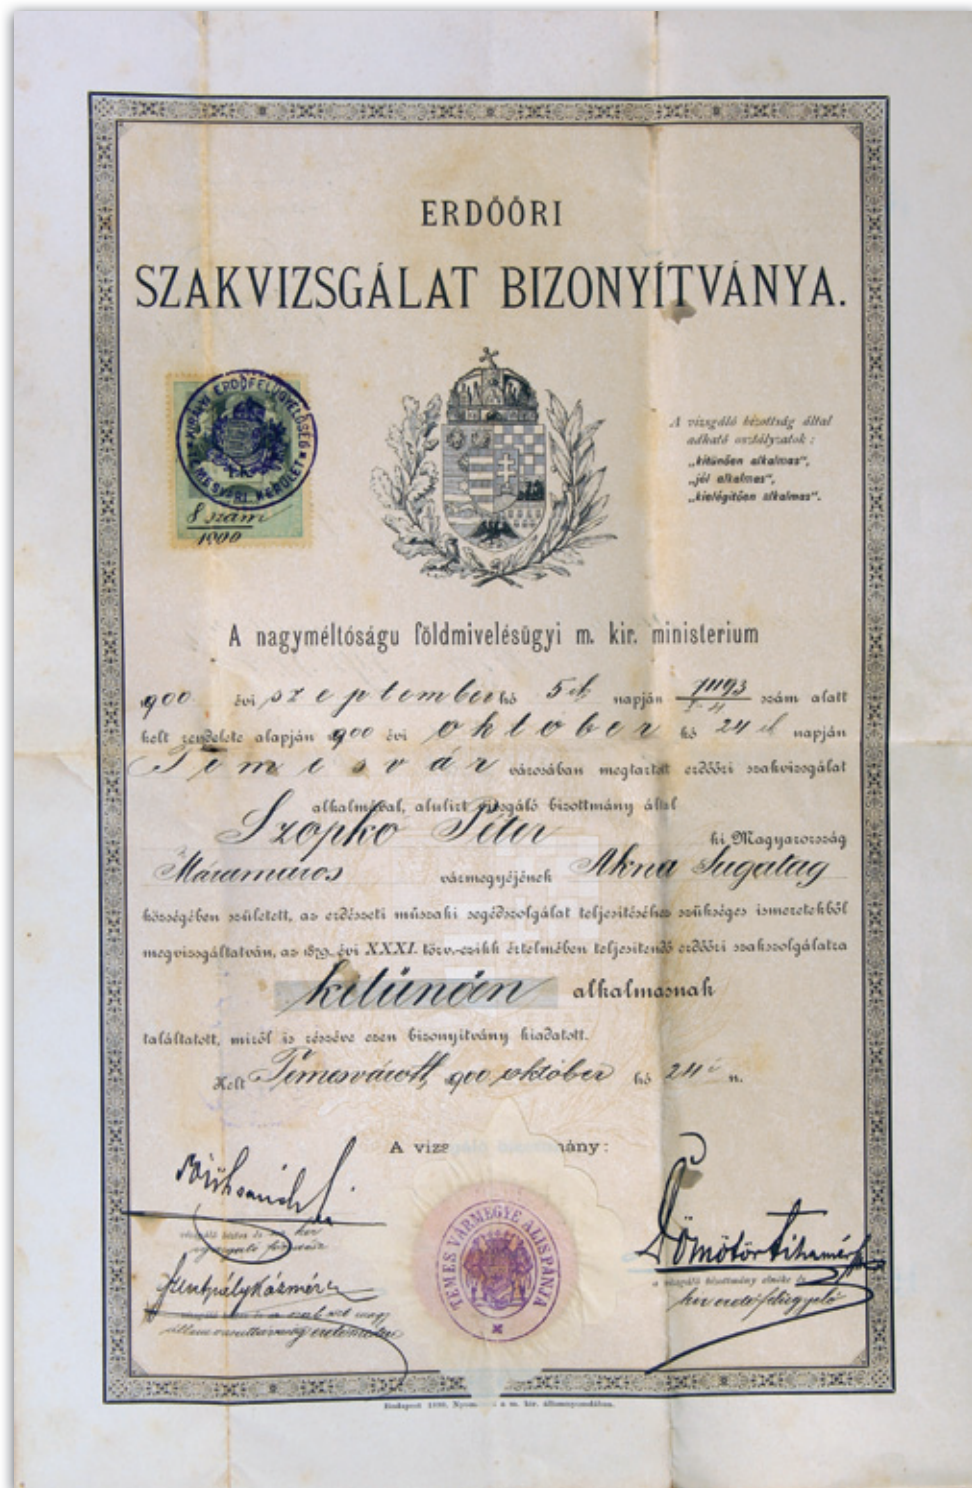 ERDŐŐRI
SZAKVIZSGÁLAT BIZONYÍTVÁNYA.
KIRÁLYI ERDŐFELÜGYELŐSÉG TEMESVÁRI KERÜLET
8 szám
1900
A vizsgáló bizottság által
adható osztályzatok:
„kitünően alkalmas",
„jól alkalmas",
„kielégitően alkalmas".
A nagyméltóságu földmivelésügyi m. kir. ministerium
900 évi szeptember hó 5 napján szám alatt
kelt rendelete alapján 900 évi oktober hó 24 napján
Temesvár városában megtartott erdőőri szakvizsgálat
alkalmával, alulirt vizsgáló bizottmány által
Szopkó Péter ki Magyarország
Máramaros vármegyéjének Akna Sugatag
községében született, az erdészeti műszaki segédszolgálat teljesitéséhez szükséges ismeretekből
megvizsgáltatván, az 1879. évi XXXI. törv.-czikk értelmében teljesitendő erdőőri szakszolgálatra
kitünőn alkalmasnak
találtatott, miről is részéve ezen bizonyitvány kiadatott.
Kelt Temesvárott, 900 október hó 24 n.
A bizottmány:
TEMES VÁRMEGYE ALISPÁNJA
Dömötör Tihamér
a vizsgáló bizottmány elnöke
kir erdőfelügyelő
Szentpály Kázmér
Budapest a m. kir. államnyomdában.